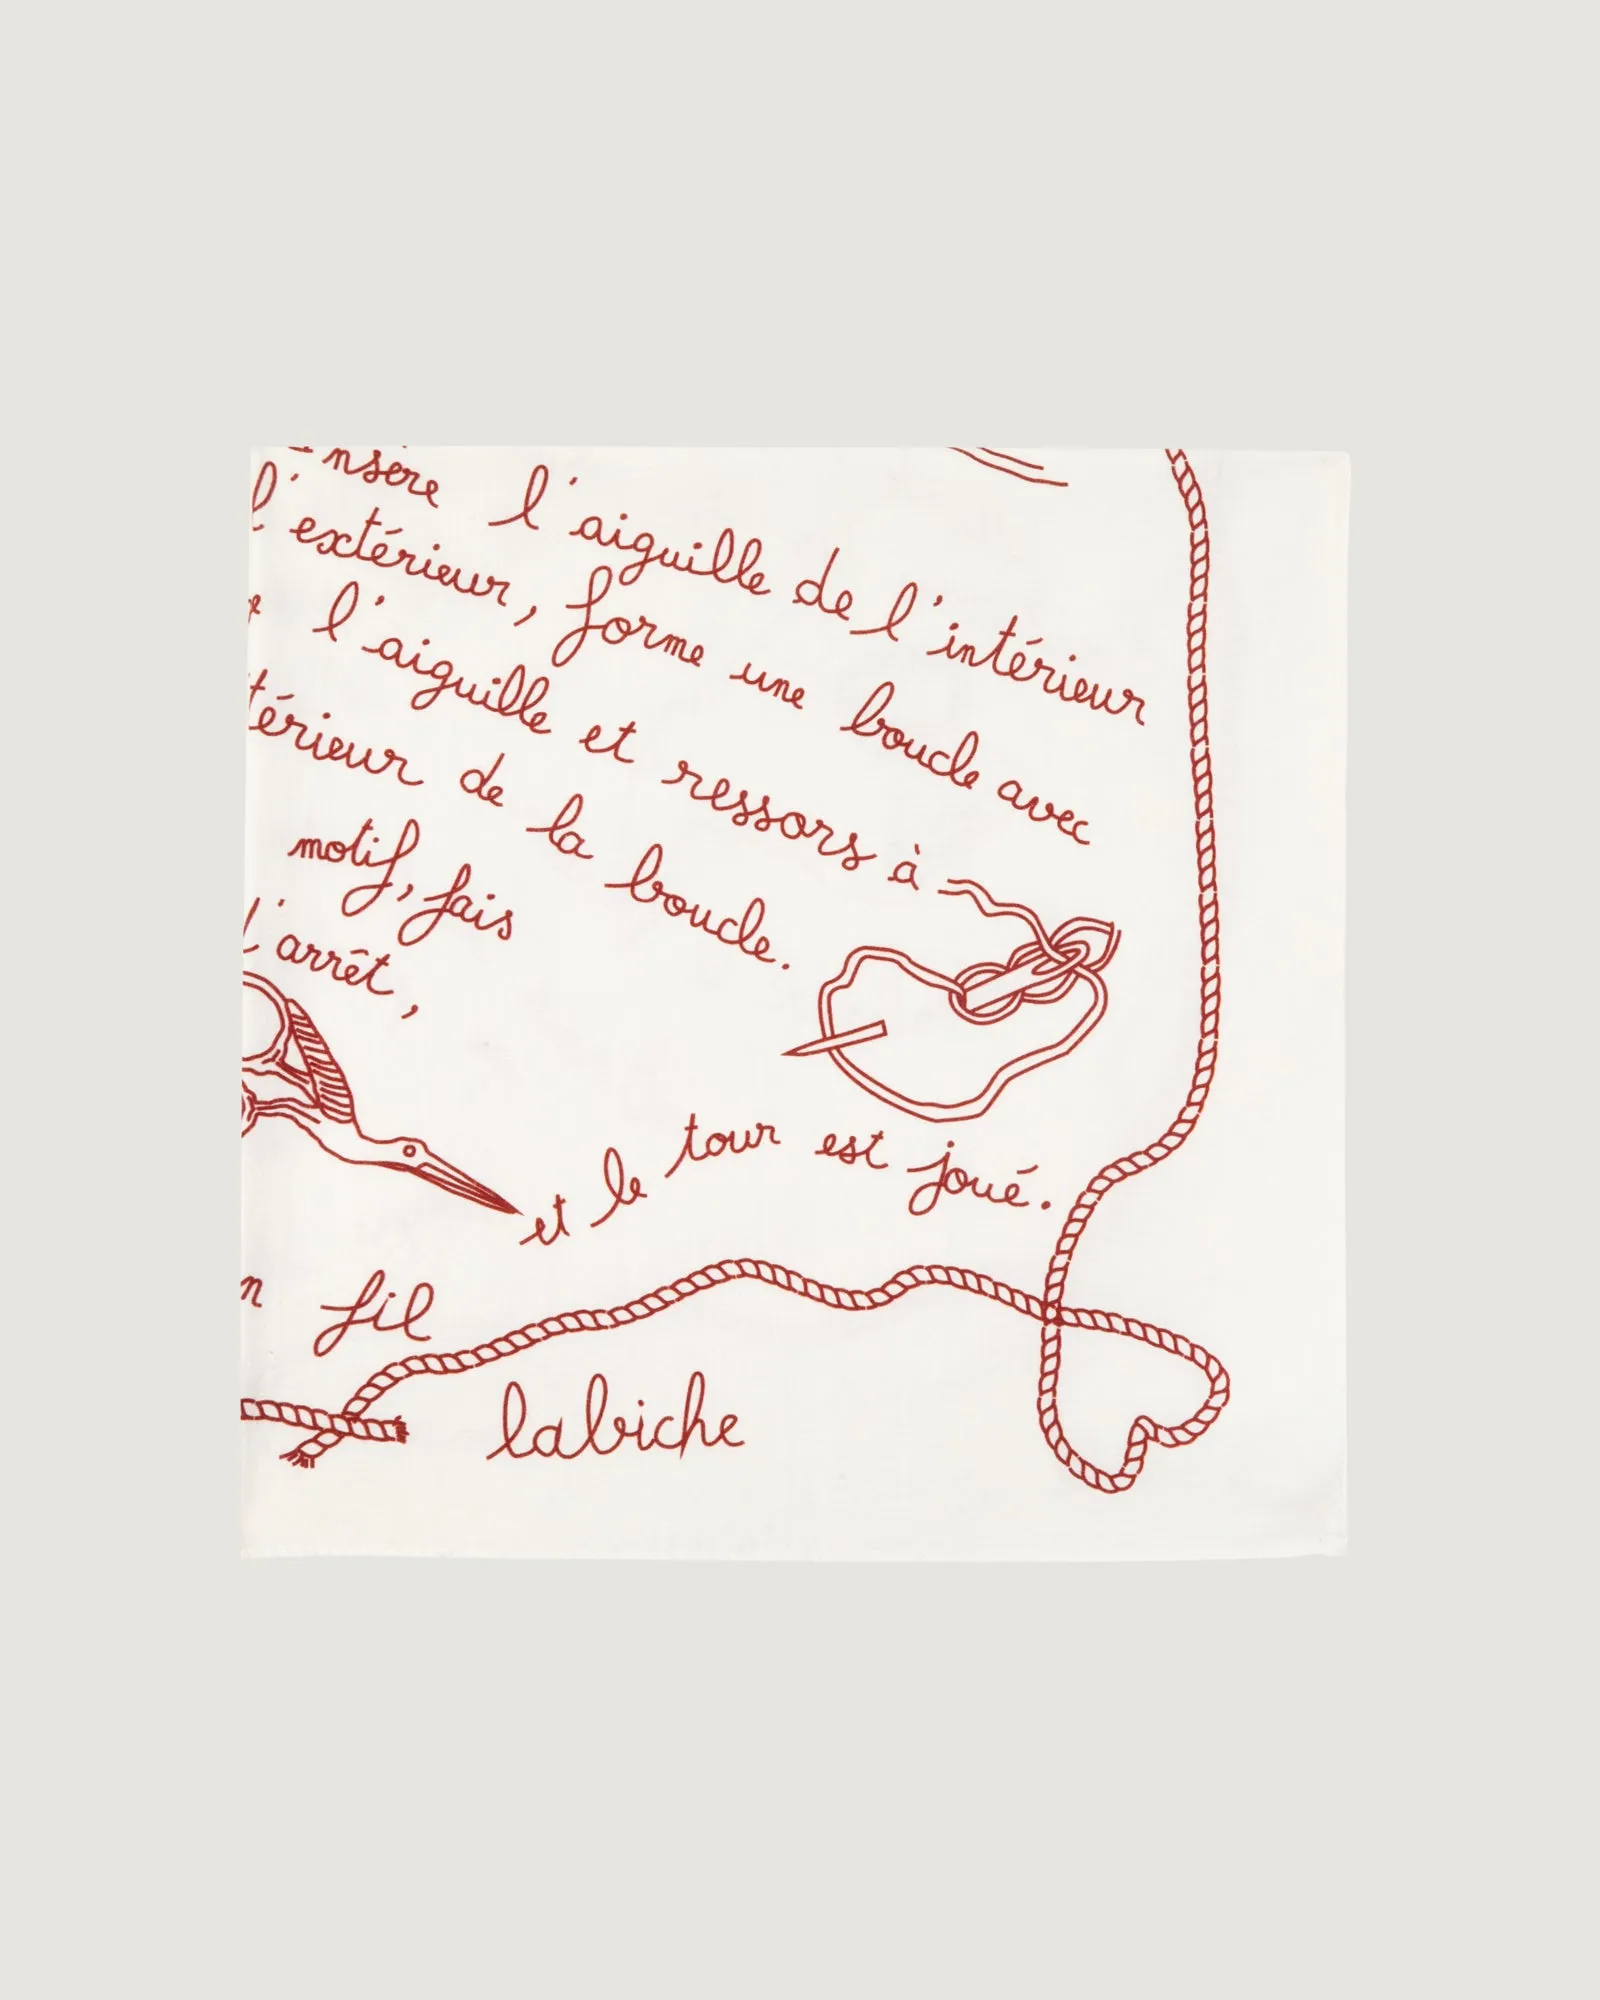 Insère l'aiguille de l'intérieur
l'extérieur, forme une boucle avec
l'aiguille et ressors à
térieur de la boucle.
motif, fais
l'arrêt,
et le tour est joué.
n fil
labiche